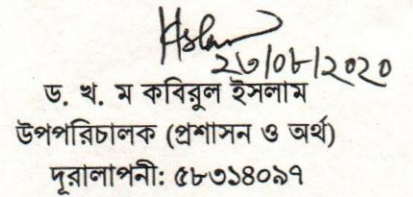 ২৩/০৮/২০২০
ড. খ. ম কবিরুল ইসলাম
উপপরিচালক (প্রশাসন ও অর্থ)
দূরালাপনী: ৫৮৩১৪০৯৭